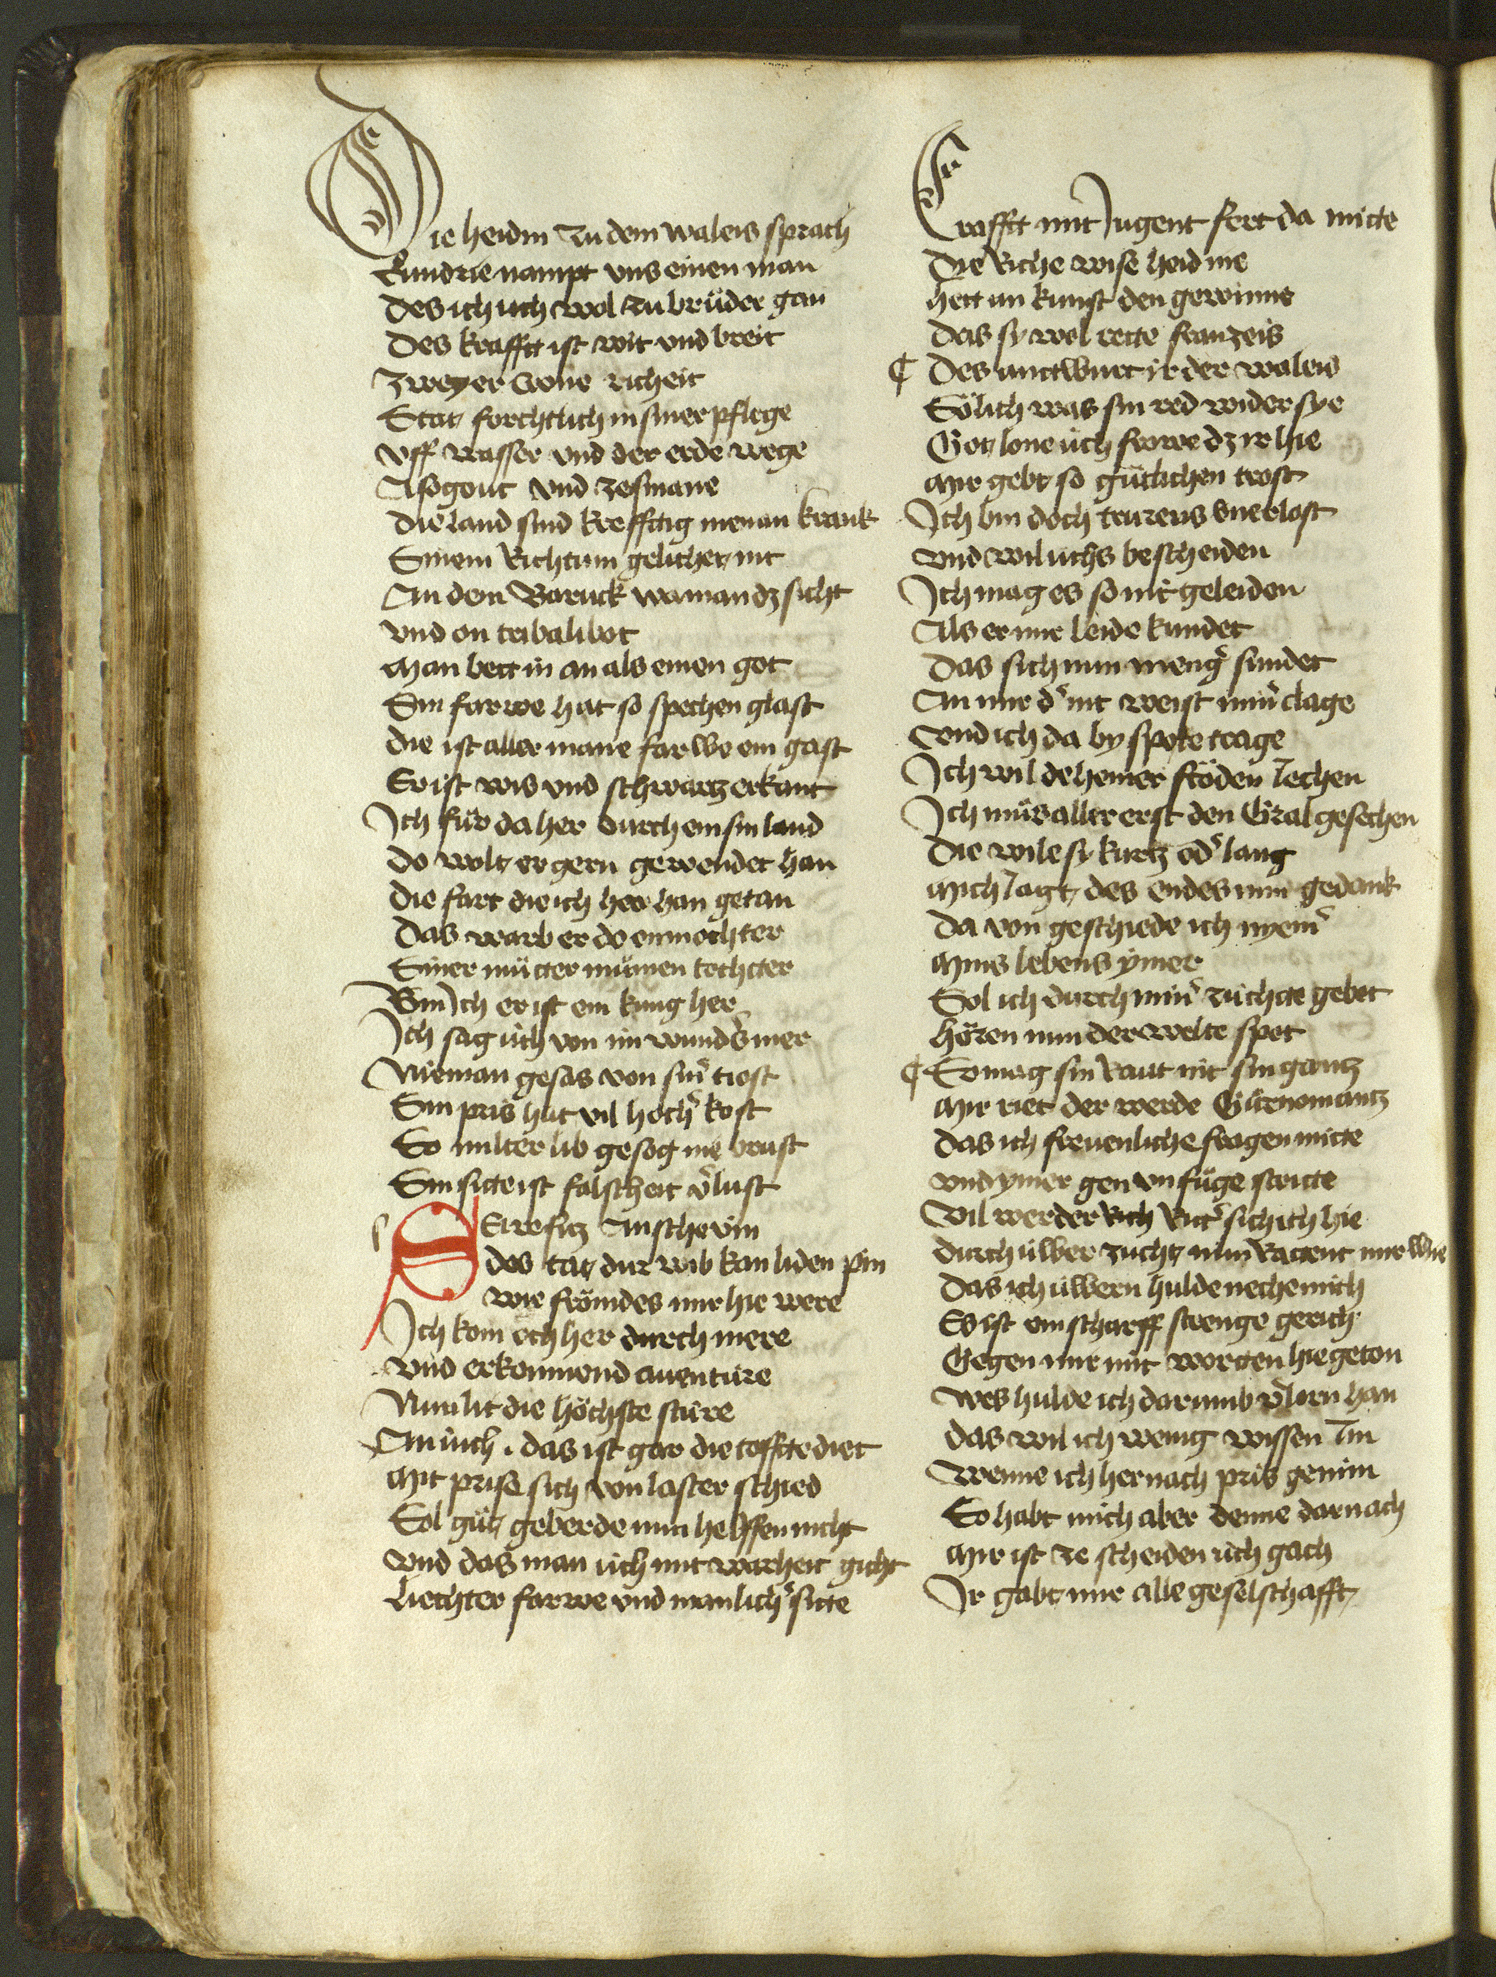 Die heidin zu dem waleis sprach
Kundrie nampt vns einen man
Des ich uch wol zu brüder gan
Des krafft ist wit vnd breit
Zweyer crone richeit
Stat forchtlich in siner pflege
Vff wasser vnd der erde wege
Asogout vnd zesmane
Die land sind krefftig nienan krank
Sinem Richtum gelichet nit
An dem Baruck wa man dz sicht
Vnd on tribalibot
Man bett in an als einen got
Sin farwe hat so spechen glast
Die ist aller mane farwe ein gast
Er ist wis vnd schwartz erkant
Ich für da her durch ein sin land
Do wolt er gern gewendet han
Die fart die ich her han getan
Das warb er do enmochter
Siner mutter mümen tochter
Bin ich er ist ein kung her
Ich sag üch von im wunds mer
Nieman gesas von sinr tiost
Sin pris hat vil hochr kost
So milter lib gesog nie brust
Sin sitte ist falscheit vlust
SEirefitz Anschevin
des tat dur wib kan liden pin
wie frömdes mir hie were
Ich kom och her durch mere
Vnd erkonnend auentüre
Nun lit die höchste stüre
An üch . das ist gar die toffte diet
Mit prise sich von laster schied
Sol güt geberde min helffen nicht
Vnd das man üch mit warheit gicht
Liechter farwe vnd manlichr sitte
Crafft mit Jugent fert da mitte
Die Riche wise heidine
hett an kunst den gewinne
Das sy wol rette franzeis
¶ Des antwurt ir der waleis
Sölich was sin red wider sye
Got lone üch frowe dz ir hie
Mir gebt so gütlichen trost
Ich bin doch trurens vnerlost
Vnd wil uchs bescheiden
Ich mag es so nit geleiden
Als er mir leide kundet
Das sich nun mengr sundet
An mir dr nit weist minr clage
Vnd ich da by spote trage
Ich wil deheiner fröden Jechen
Ich müs aller erst den Gral gesechen
Die wile sy kurtz odr lang
Mich Jagt des endes min gedank
Da von geschiede ich nyemr
Mins lebens ymer
Sol ich durch minr züchte gebet
Hören nun der welte spot
¶ So mag sin Raut nit sin gantz
Mir riet der werde Gürnomantz
Das ich freuenliche fragen mitte
Vnd ymer gen vnfüge stritte
Vil werder Rich Rittr sich ich hie
Durch üwer zucht nun Ratent mir wie
Das ich üwern hulde neche mich
Es ist ein scharff strenge gerich
Gegen mir mit worten hie geton
Wes hulde ich darumb vlorn han
Das wil ich wenig wissen Im
Wenne ich hernach pris genim
So habt mich aber denne darnach
Mir ist ze scheiden uch gach
Ir gabt mir alle geselschafft